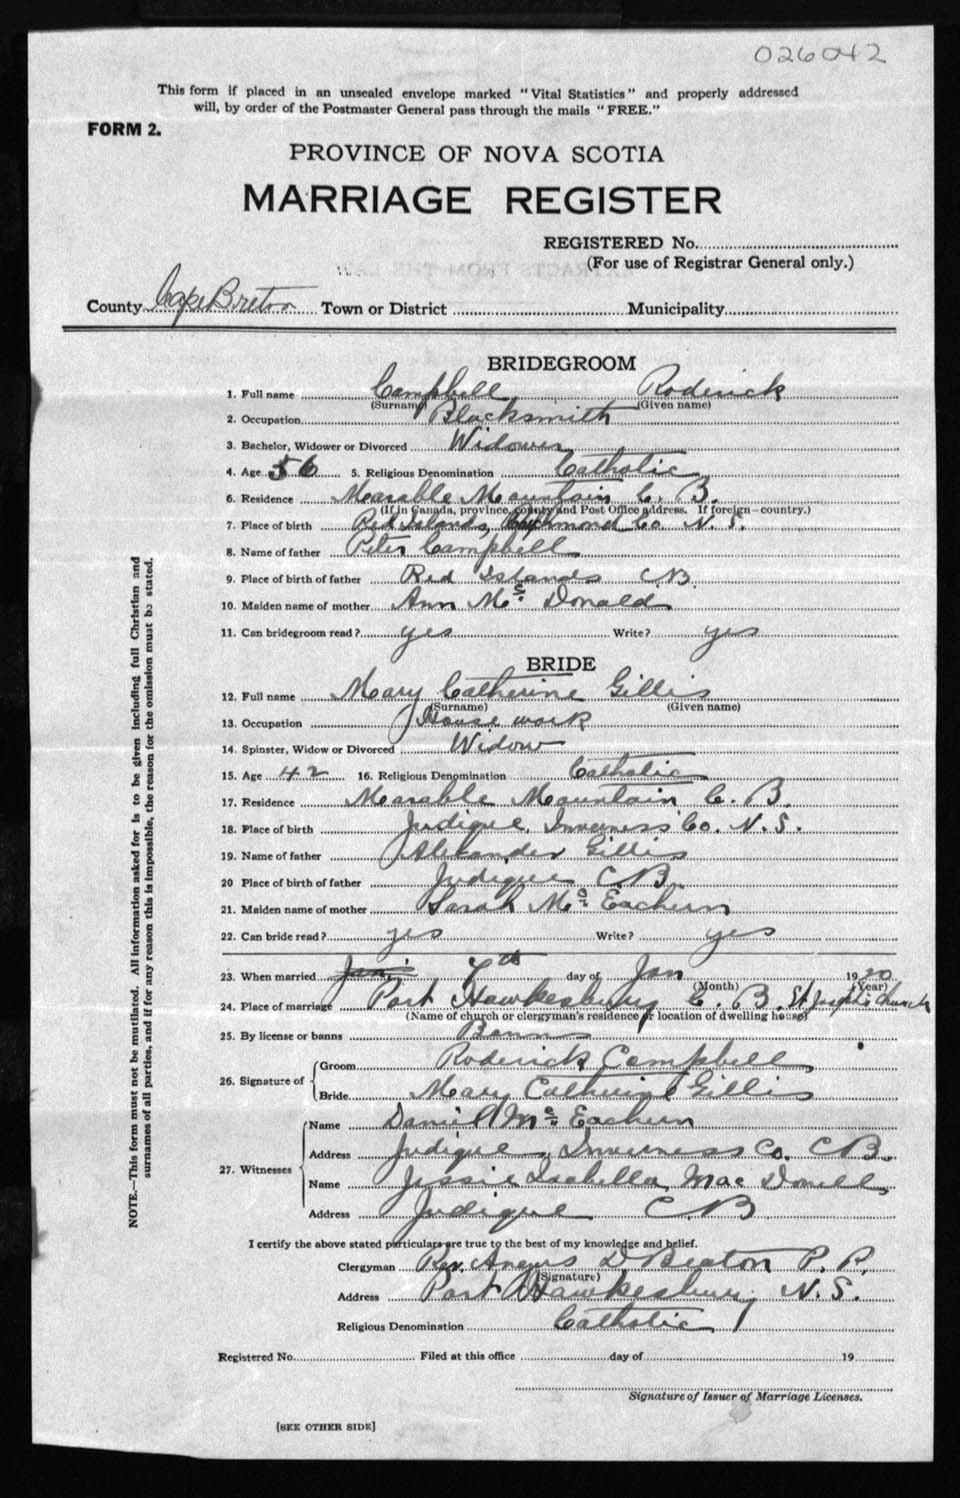 026042
This form if placed in an unsealed envelope marked "Vital Statistics" and properly addressed
will, by order of the Postmaster General pass through the mails "FREE."
FORM 2.
PROVINCE OF NOVA SCOTIA
MARRIAGE REGISTER
REGISTERED No.
(For use of Registrar General only.)
County Cape Breton Town or District Municipality
BRIDEGROOM
1. Full name Campbell Roderick
(Surname) (Given name)
2. Occupation Blacksmith
3. Bachelor, Widower or Divorced Widower
4. Age 56 5. Religious Denomination Catholic
6. Residence Marable Mountain C. B.
(If in Canada, province, county and Post Office address. If foreign—country.)
7. Place of birth Red Islands, Richmond Co N. S.
8. Name of father Peter Campbell
9. Place of birth of father Red Islands CB
10. Maiden name of mother Ann Mc Donald
11. Can bridegroom read? yes Write? yes
BRIDE
12. Full name Mary Catherine Gillis
(Surname) (Given name)
13. Occupation House work
14. Spinster, Widow or Divorced Widow
15. Age 42 16. Religious Denomination Catholic
17. Residence Marable Mountain C. B.
18. Place of birth Judique, Inverness Co. N. S.
19. Name of father Alexander Gillis
20 Place of birth of father Judique CB.
21. Maiden name of mother Sarah Mc Eachern
22. Can bride read? yes Write? yes
23. When married Jan 7th day of Jan 1920
(Month) (Year)
24. Place of marriage Port Hawkesbury C. B. St Joseph's Church
(Name of church or clergyman's residence or location of dwelling house)
25. By license or banns Banns
26. Signature of
Groom Roderick Campbell
Bride Mary Catherine Gillis
27. Witnesses
Name Daniel Mc Eachern
Address Judique, Inverness Co. CB.
Name Jessie Isabella Mac Donell
Address Judique CB
I certify the above stated particulars are true to the best of my knowledge and belief.
Clergyman Rev. Angus D Beaton P. P.
(Signature)
Address Port Hawkesbury N. S.
Religious Denomination Catholic
Registered No. Filed at this office day of 19
Signature of Issuer of Marriage Licenses.
[SEE OTHER SIDE]
NOTE.—This form must not be mutilated. All information asked for is to be given including full Christian and
surnames of all parties, and if for any reason this is impossible, the reason for the omission must be stated.